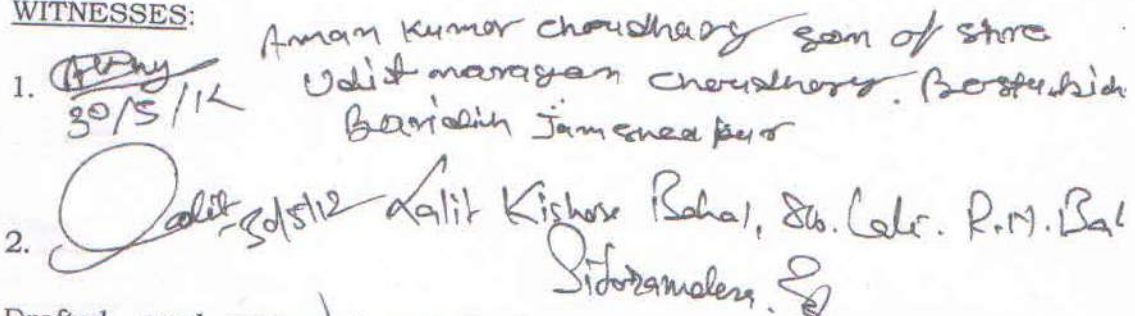 WITNESSES:
Aman Kumar Choudhary son of Shre
1. 30/5/12 Udit narayan Choudhary.
Baridih Jamshedpur
2. Lalit 30/5/12 Lalit Kishore Bahal, S/o. Late. R.N. Bal
Sitaramdera.
Drafted